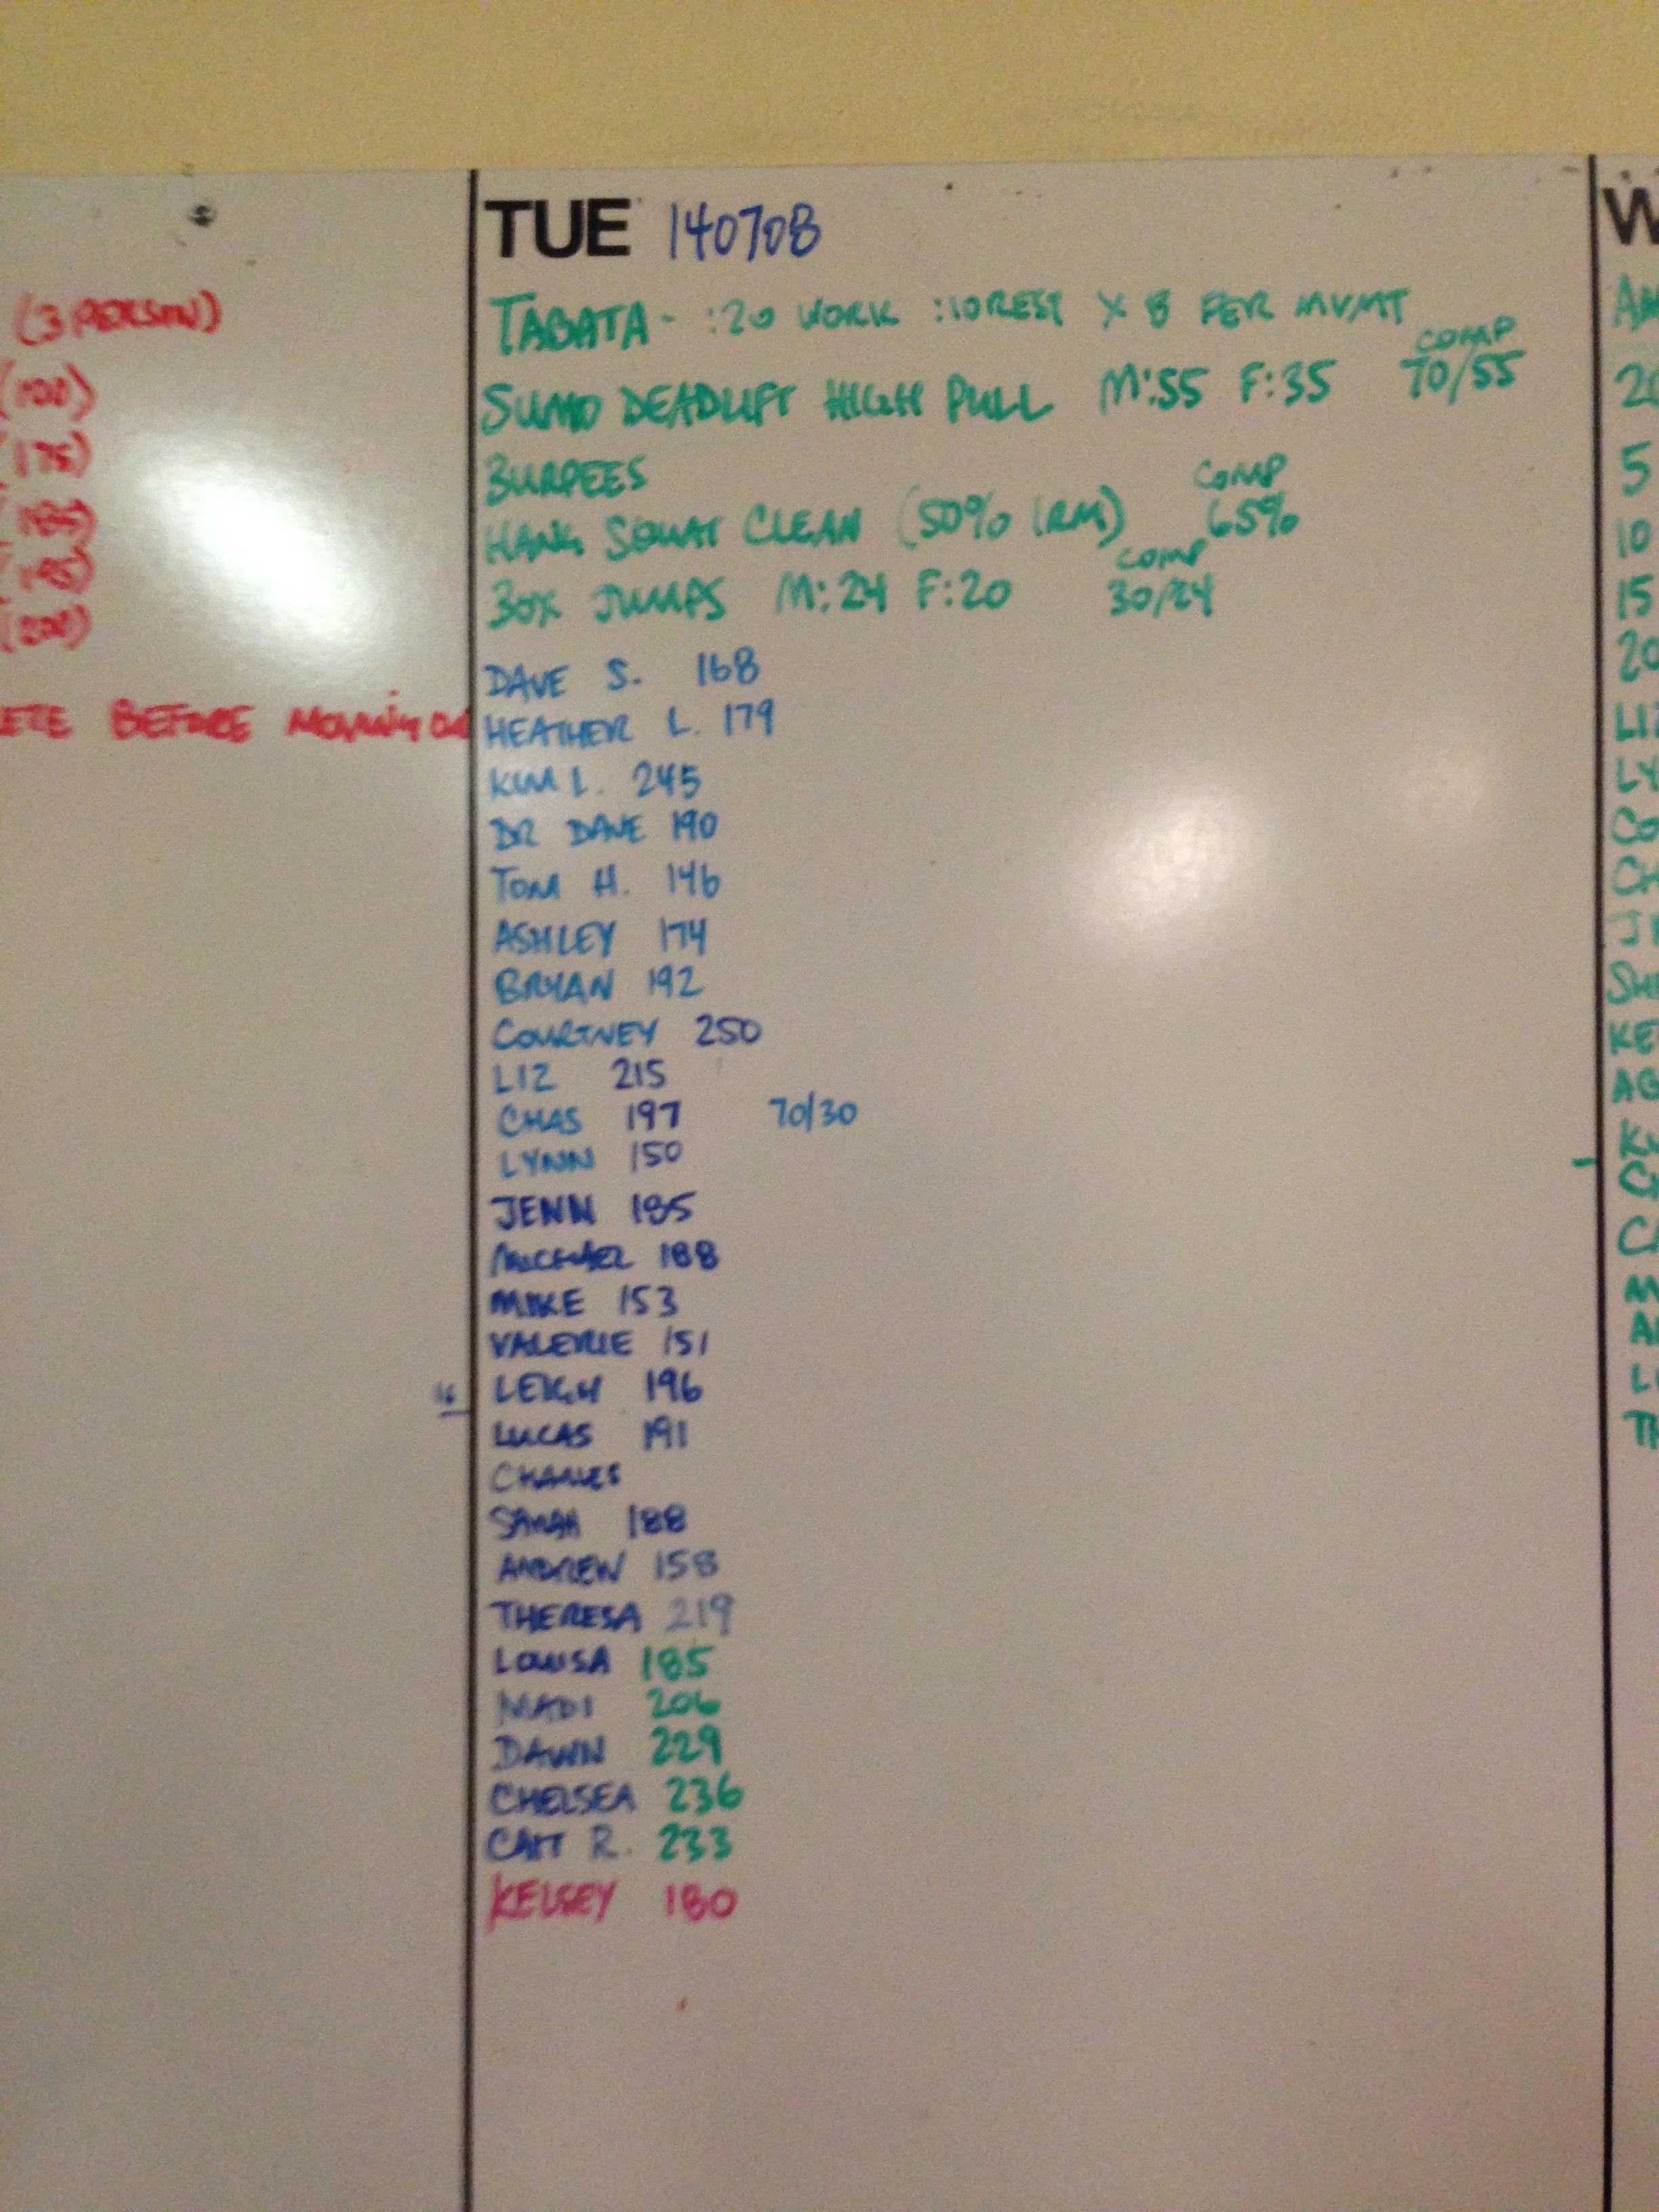 (3 PERSON)
(175)
BEFORE MOVING ON
TUE 140708
TABATA - :20 WORK :10 REST X 8 PER MVMT
COMP
SUMO DEADLIFT HIGH PULL M:55 F:35 70/55
BURPEES COMP
HANG SQUAT CLEAN (50% 1RM) 65%
COMP
BOX JUMPS M:24 F:20 30/24
DAVE S. 168
HEATHER L. 179
KIM L. 245
DR DAVE 190
TOM H. 146
ASHLEY 174
BRYAN 192
COURTNEY 250
LIZ 215
CHAS 197 70/30
LYNN 150
JENN 185
MICHAEL 188
MIKE 153
VALERIE 151
16 LEIGH 196
LUCAS 191
CHARLES
SARAH 188
ANDREW 158
THERESA 219
LOUISA 185
MADI 206
DAWN 229
CHELSEA 236
CAIT R. 233
KELSEY 180
W
5
10
15
20